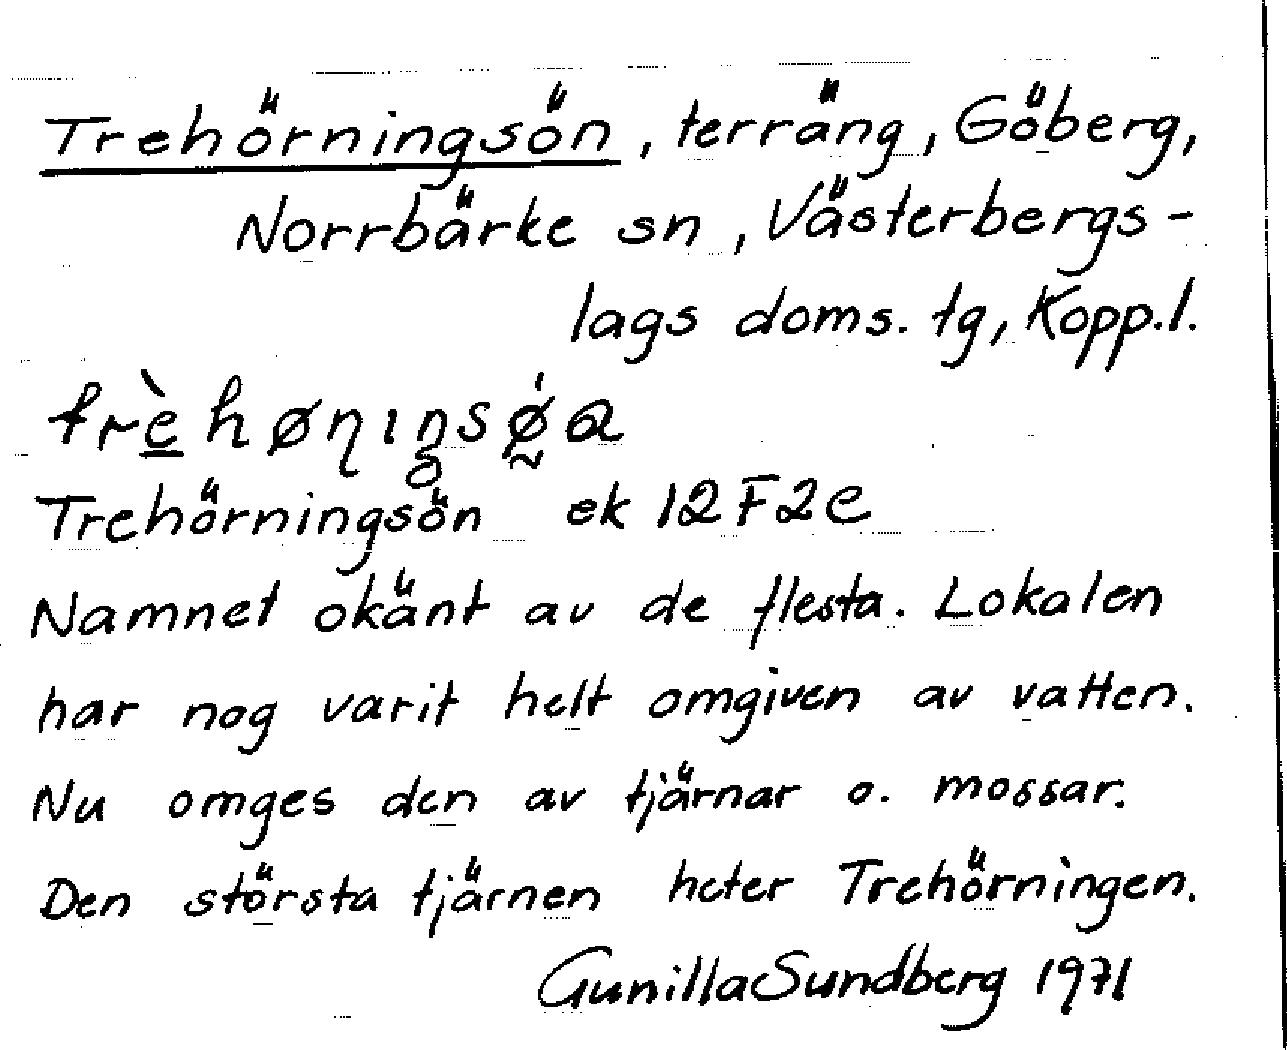 Trehörningsön, terräng, Göberg,
Norrbärke sn, Västerbergs-
lags doms. tg, Kopp.l.
trè̠høɳıŋsǿ̰a
Trehörningsön ek 12F2e
Namnet okänt av de flesta. Lokalen
har nog varit helt omgiven av vatten.
Nu omges den av tjärnar o. mossar.
Den största tjärnen heter Trehörningen.
Gunilla Sundberg 1971